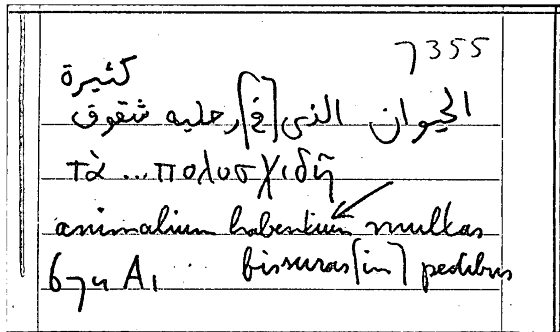 7355
كثيرة
الحيوان الذى [في] رجليه شقوق
τὰ ... πολυσχιδῆ
animalium habentium multas
fissuras [in] pedibus
674 A1